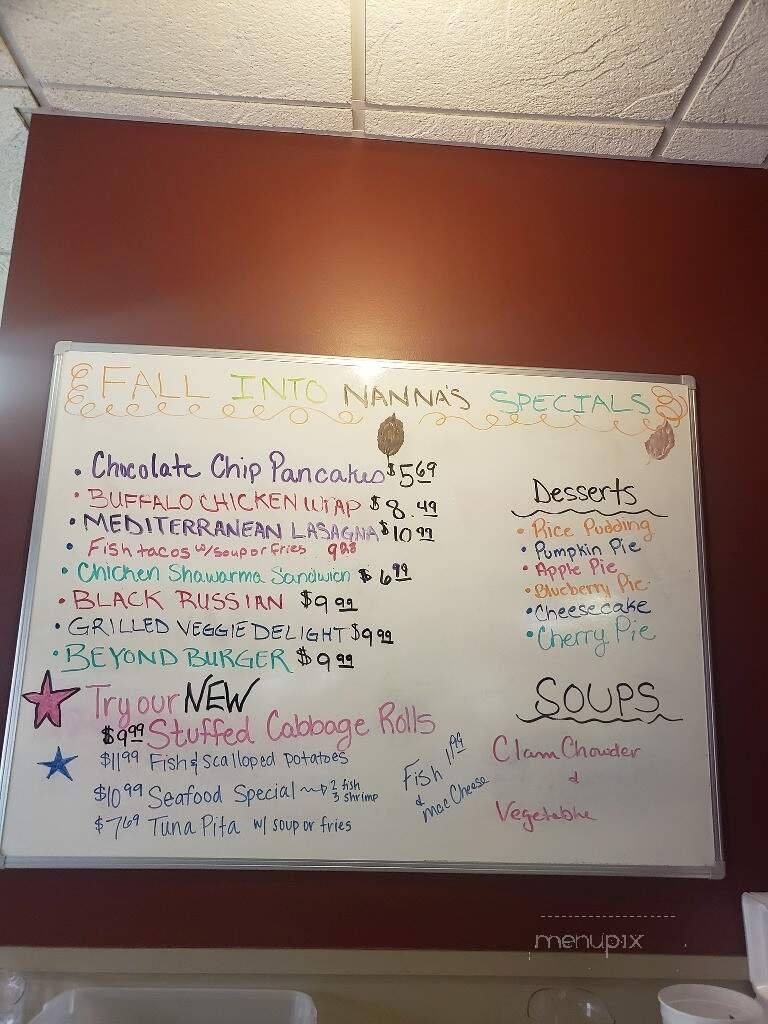 FALL INTO NANNA'S SPECIALS
• Chocolate Chip Pancakes $5 69
• BUFFALO CHICKEN WRAP $8.49
• MEDITERRANEAN LASAGNA $10 99
• Fish tacos w/ soup or fries 9 28
• Chicken Shawarma Sandwich $6 99
• BLACK RUSSIAN $9 99
• GRILLED VEGGIE DELIGHT $9 99
• BEYOND BURGER $9 99
Try our NEW
$9 99 Stuffed Cabbage Rolls
$11 99 Fish & Scalloped potatoes
$10 99 Seafood Special → 2 fish
3 shrimp
$7 69 Tuna Pita w/ soup or fries
Fish 11 99
& mac Cheese
Desserts
• Rice Pudding
• Pumpkin Pie
• Apple Pie
• Blueberry Pie
• Cheesecake
• Cherry Pie
SOUPS
Clam Chowder
&
Vegetable
menupix